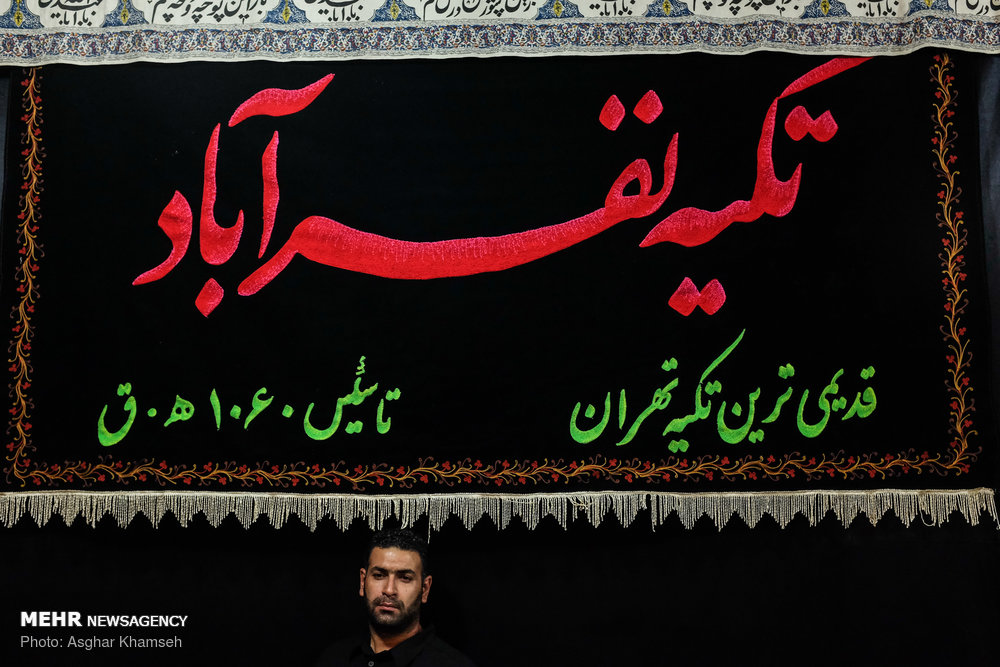 تکیه نفرآباد
قدیمی ترین تکیه تهران
تاسئیس ۱۰۶۰ ه.ق
MEHR NEWSAGENCY
Photo: Asghar Khamseh